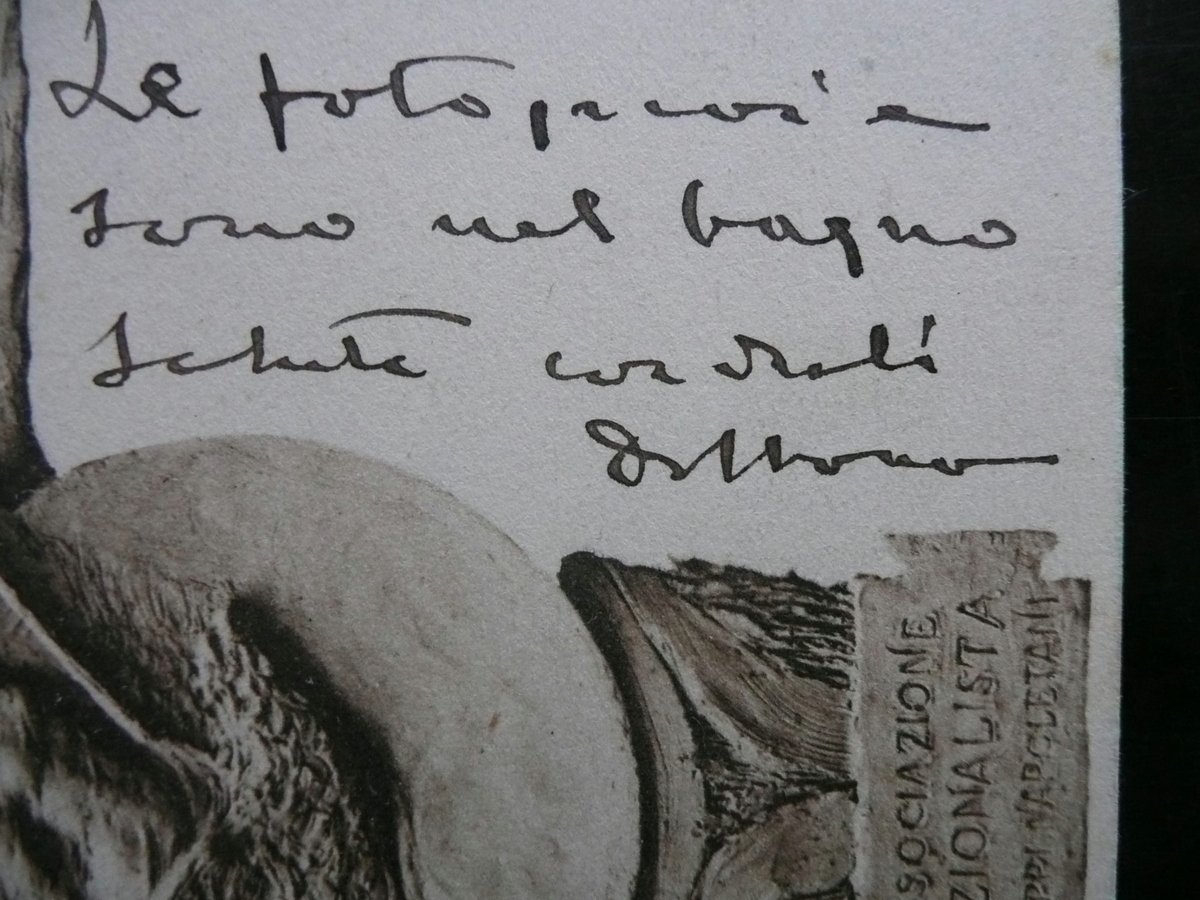 Le fotografie
sono nel bagno
Saluti cordiali
SOCIAZIONE
ZIONALISTA
PPI NAPOLETANI